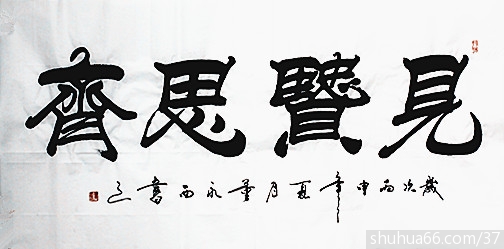 見賢思齊
歲次丙申年夏月董永西書
shuhua66.com/37